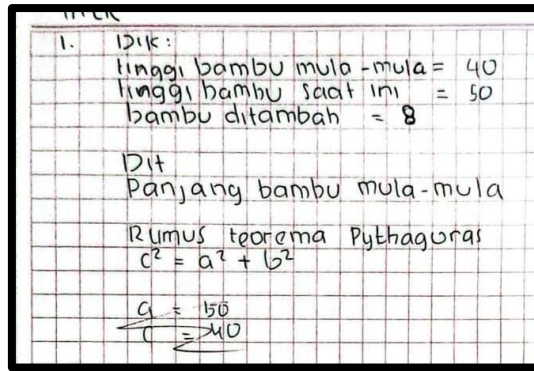 1. Dik:
tinggi bambu mula-mula = 40
tinggi bambu saat ini = 50
bambu ditambah = 8
Dit
Panjang bambu mula-mula
Rumus teorema Pythaguras
c² = a² + b²
a = 50
c = 40